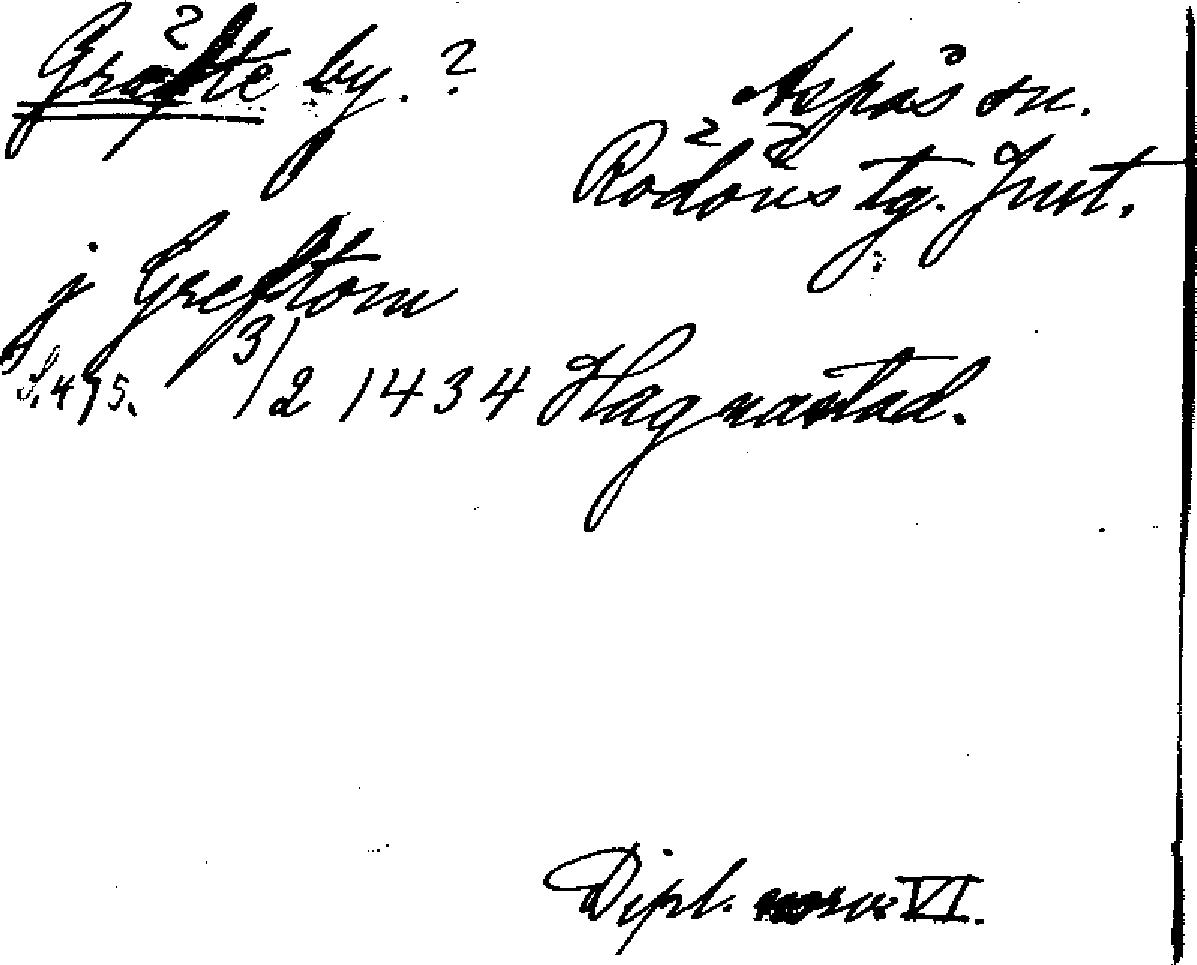 Gräfte by. ?
Aspås sn.
Rödöns tg. Jmt.
j Greftom
S. 475. 3/2 1434 Hagnastad.
Dipl. norv. VI.